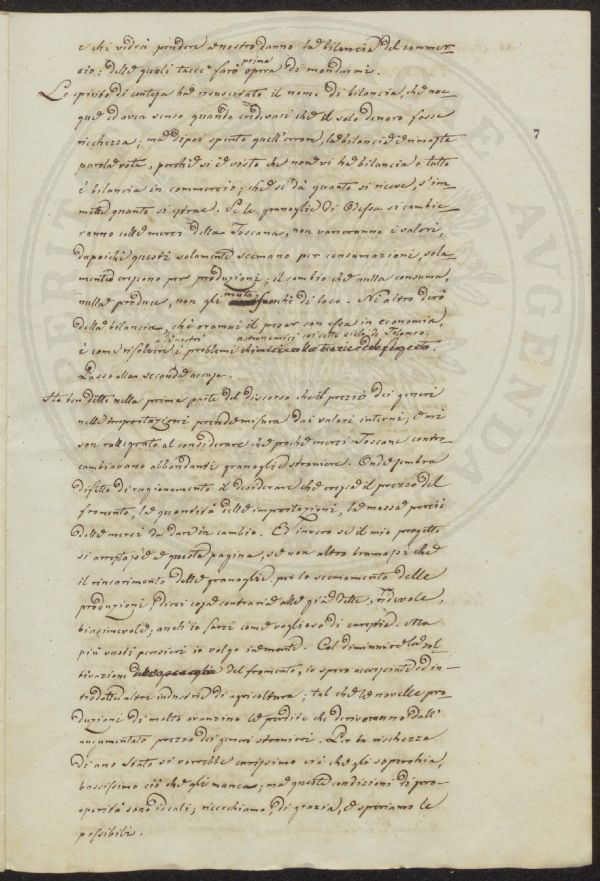 e chi vedrà pendere a nostro danno la bilancia del commer-
cio: delle quali tacce farò prima opera di mondarmi.
Lo spirito di contesa ha risuscitato il nome di bilancia, che nac-
que ed avea senso quando credevasi che il solo denaro fosse
ricchezza; ma dipoi spento quell'errore, la bilancia è rimasta
parola vota, perché si è visto che non vi ha bilancia o tutto
è bilancia in commercio; che si dà quanto si riceve, s'im-
mette quanto si estrae. Se le granaglie di Odessa si cambie-
ranno colle merci della Toscana, non varieranno i valori,
dapoiché questi solamente scemano per consumazioni, sola-
mente crescono per produzioni; il cambio che nulla consuma,
nulla produce, non gli muta fuorché di loco. Né altro dirò
della bilancia, ch'è oramai il pesar con essa in economia,
è come risolvere i problemi astronomici coi sette cieli di Tolomeo.
Passo alla seconda accusa.
Ho ben detto nella prima parte del discorso che il prezzo dei generi
nelle importazioni prende misura dai valori interni; e mi
son rallegrato al considerare che poche merci Toscane contra-
cambiavano abbondanti granaglie straniere. Onde sembra
difetto di ragionamento il desiderare che cresca il prezzo del
fromento, la quantità delle importazioni, la massa perciò
delle merci da dare in cambio. Ed invero se il mio progetto
si arrestasse a questa pagina, se non altro bramassi che
il rincarimento delle granaglie per lo scemamento delle
produzioni, direi cosa contraria alle già dette, ridevole,
biasimevole; anch'io sarei come voglioso di carestia. Ma
più vasti pensieri io volgo in mente. Col diminuire la col-
tivazione del fromento, io spero accresciute ed in-
trodotte altre industrie di agricoltura; tal che le novelle pro-
duzioni di molto avanzino le perdite che deriveranno dall'
augumentato prezzo dei generi stranieri. Per la ricchezza
di uno Stato si vorrebbe carissimo ciò che gli soperchia,
bassissimo ciò che gli manca; ma queste condizioni di pro-
sperità sono ideali; ricerchiamo, di grazia, e speriamo le
possibili.
7